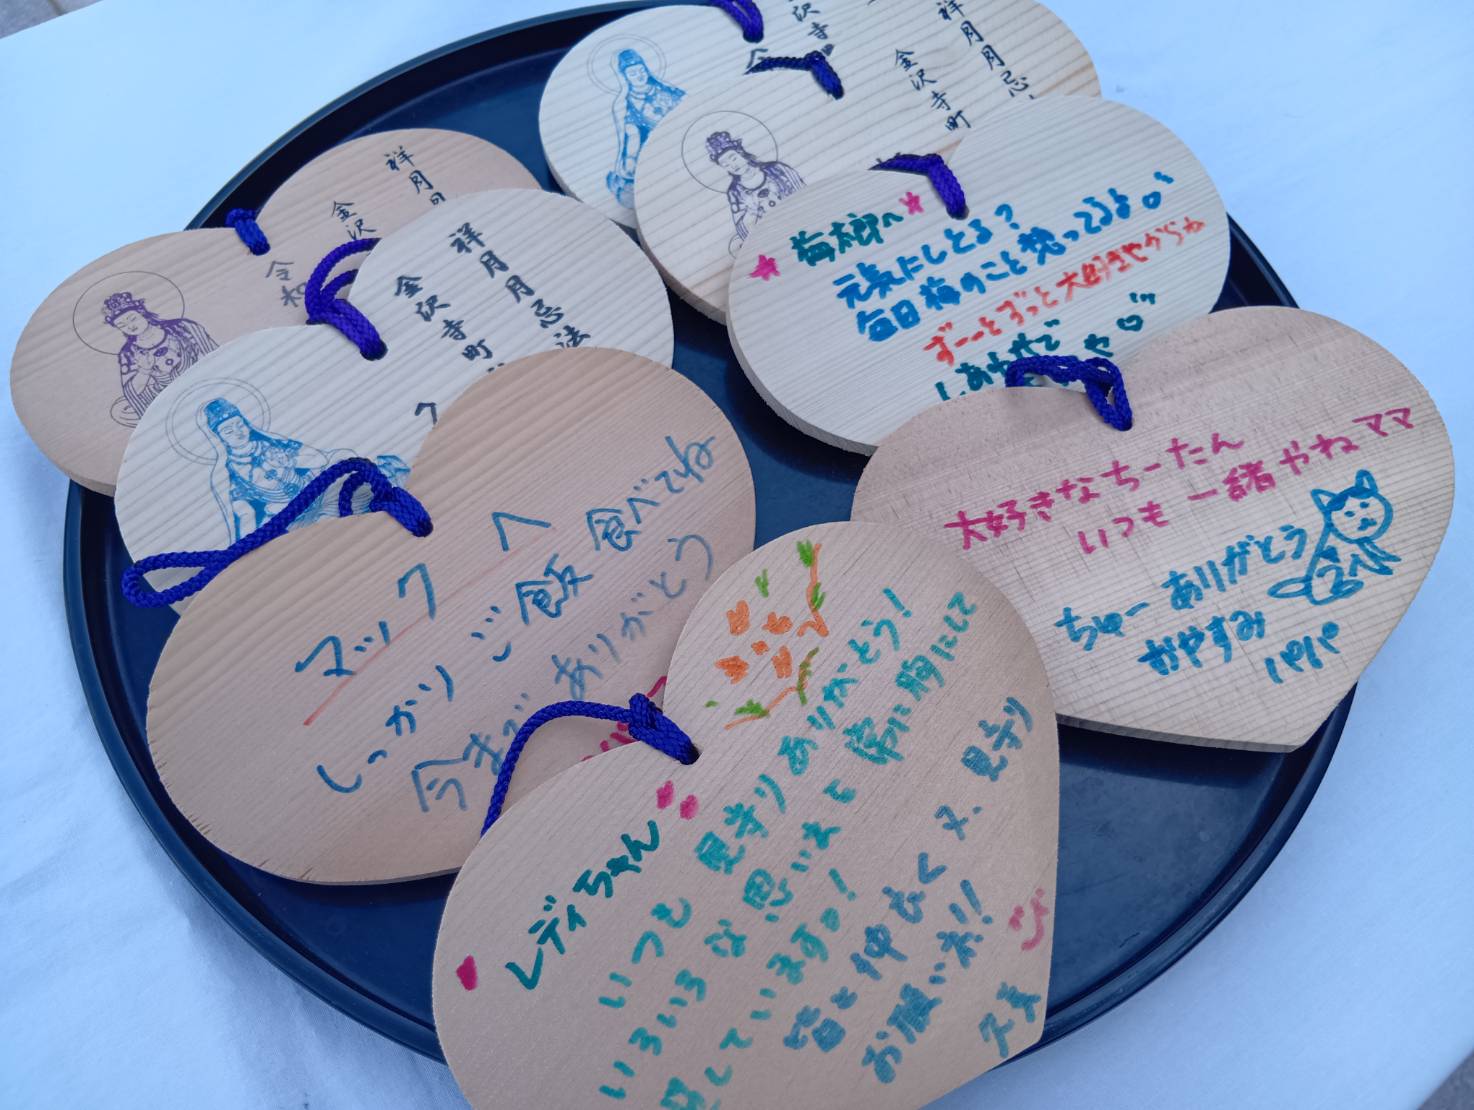 祥月
金沢
令和
祥月月忌法
金沢寺町
ク
沢寺町
祥月月忌
金沢寺町
梅太郎へ
元気にしとる?
毎日梅のこと想ってるよ。
ずーーとずっと大好きやからね
しあわせで
や♡
マックへ
しっかりご飯食べてね
今まで ありがとう
大好きなちーたん
いつも一緒やねママ
ちゅー ありがとう
おやすみ
パパ
レディちゃん
いつも見守りありがとう!
いろいろな思いをも常に胸にして
しています。!
皆と仲良く又、見守り
お願いネ!!